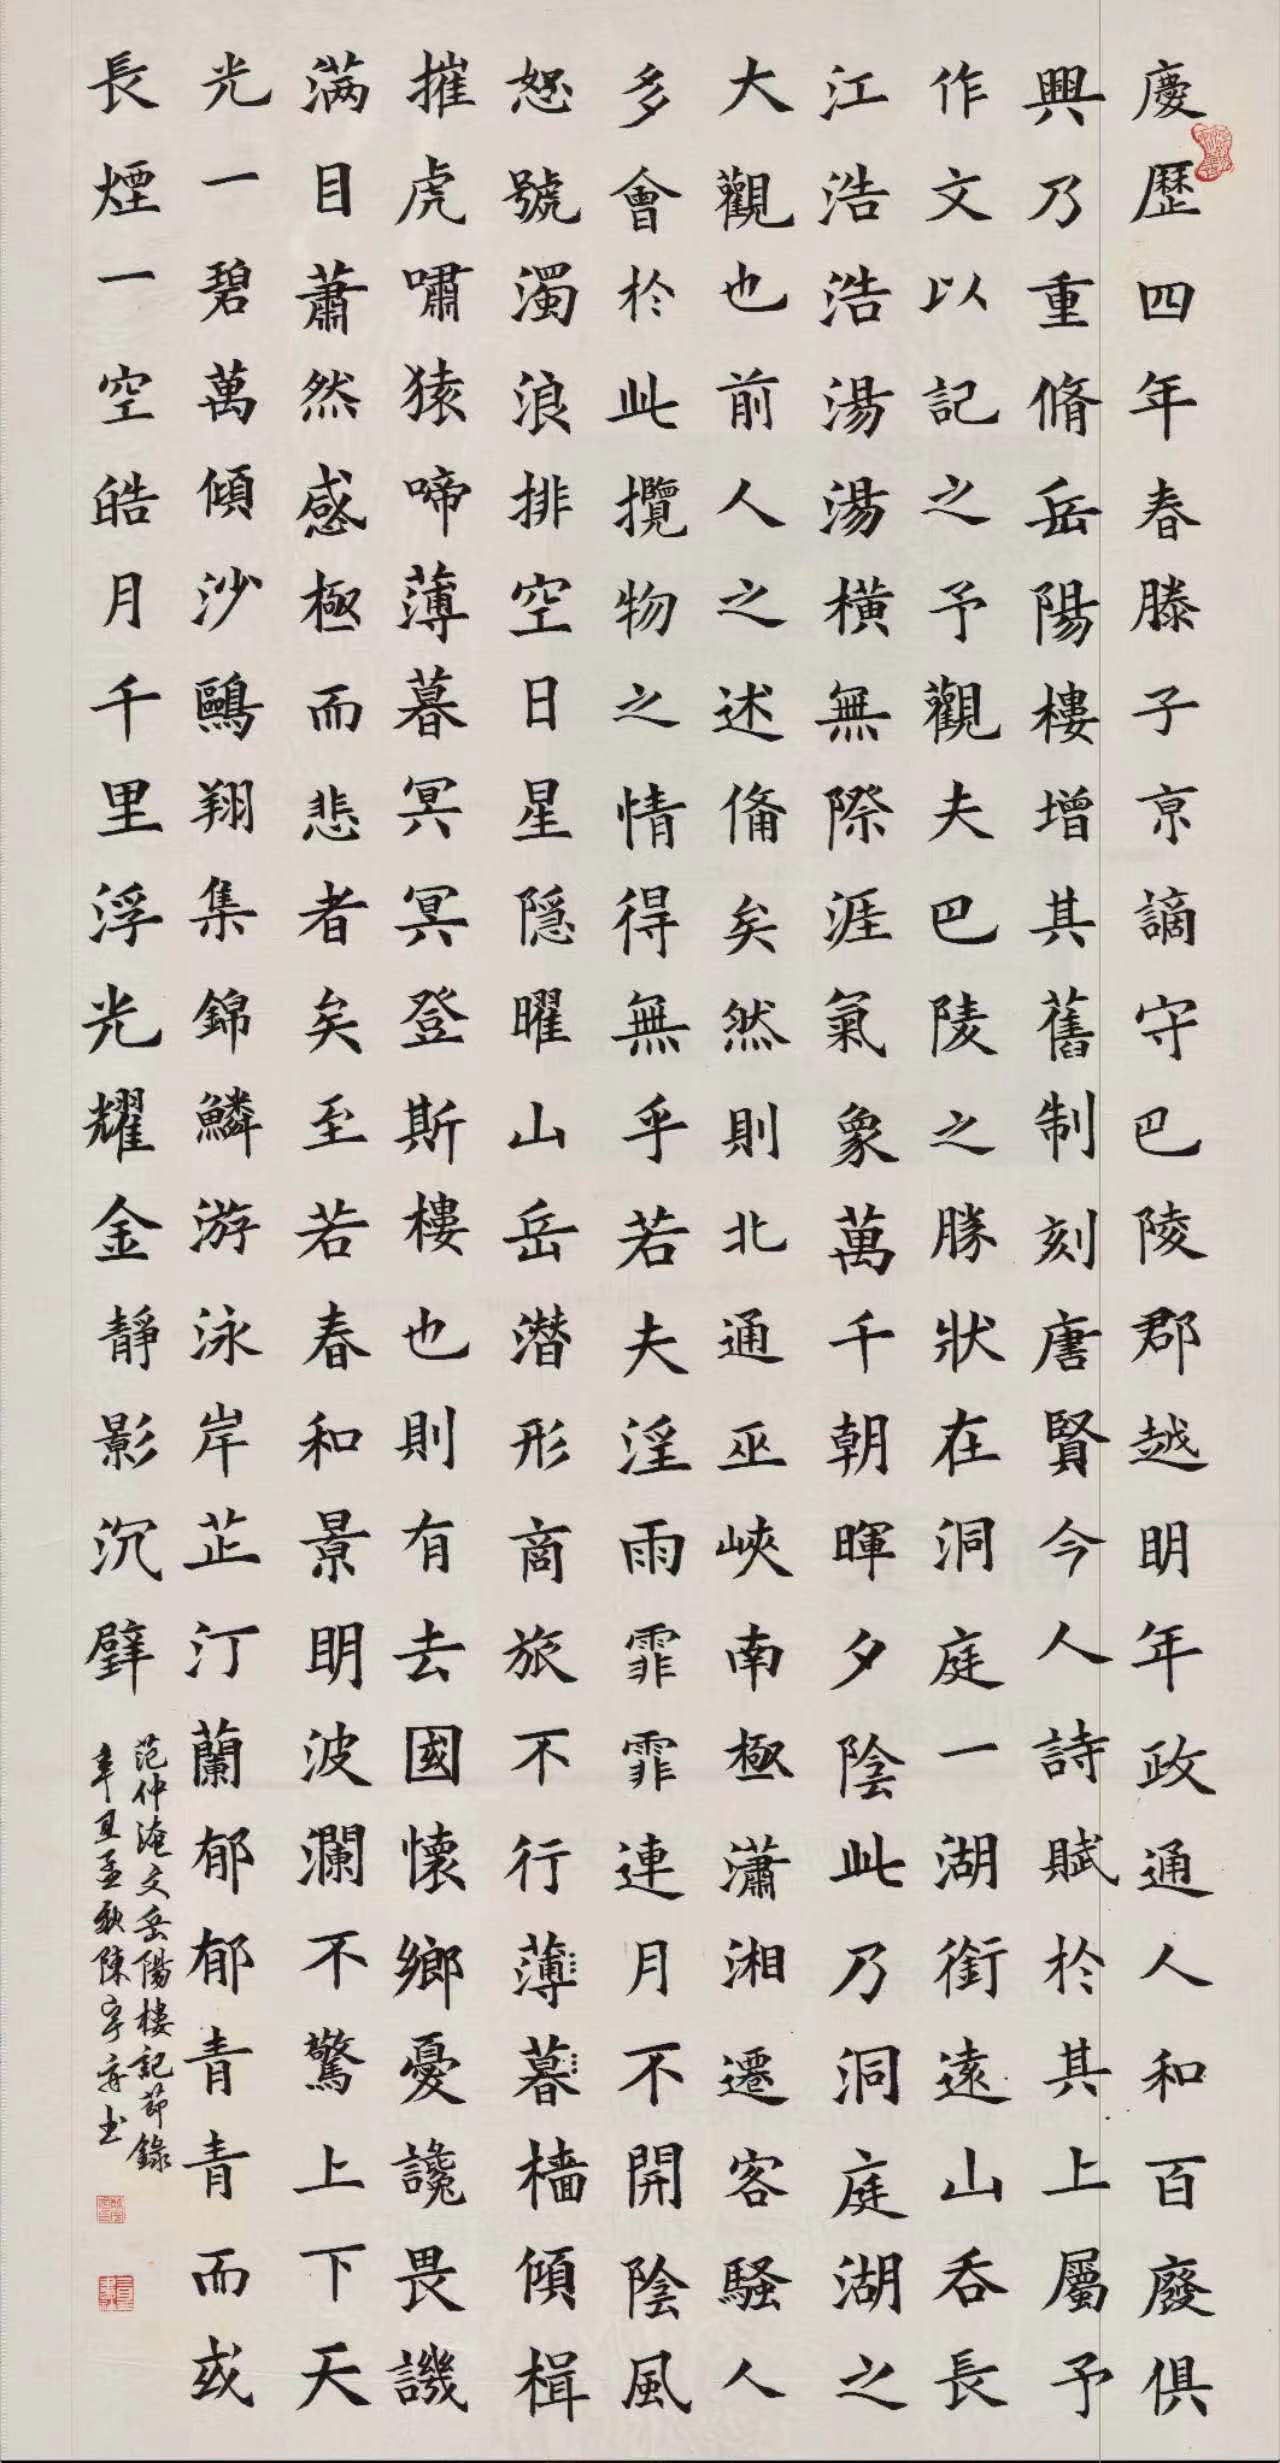 慶歷四年春滕子亰謫守巴陵郡越明年政通人和百廢俱
興乃重脩岳陽樓增其舊制刻唐賢今人詩賦於其上屬予
作文以記之予觀夫巴陵之勝狀在洞庭一湖銜遠山吞長
江浩浩湯湯橫無際涯氣象萬千朝暉夕陰此乃洞庭湖之
大觀也前人之述俻矣然則北通巫峽南極瀟湘遷客騷人
多會於此攬物之情得無乎若夫淫雨霏霏連月不開陰風
怒號濁浪排空日星隱曜山岳潛形商旅不行薄暮檣傾楫
摧虎嘯猿啼薄暮冥冥登斯樓也則有去國懷鄉憂讒畏譏
满目蕭然感極而悲者矣至若春和景明波瀾不驚上下天
光一碧萬傾沙鷗翔集錦鱗游泳岸芷汀蘭郁郁青青而或
長煙一空皓月千里浮光耀金靜影沉璧
范仲淹文岳陽樓記節錄
辛丑孟秋陳宇书